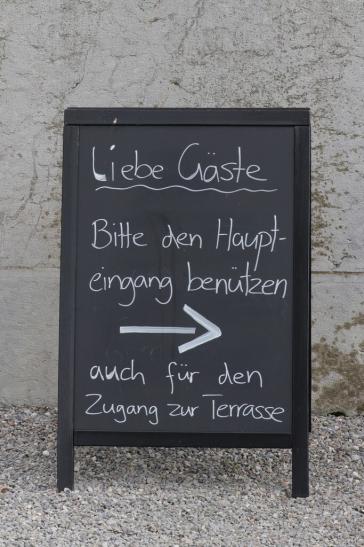 Liebe Gäste
Bitte den Haupt-
eingang benützen
auch für den
Zugang zur Terrasse